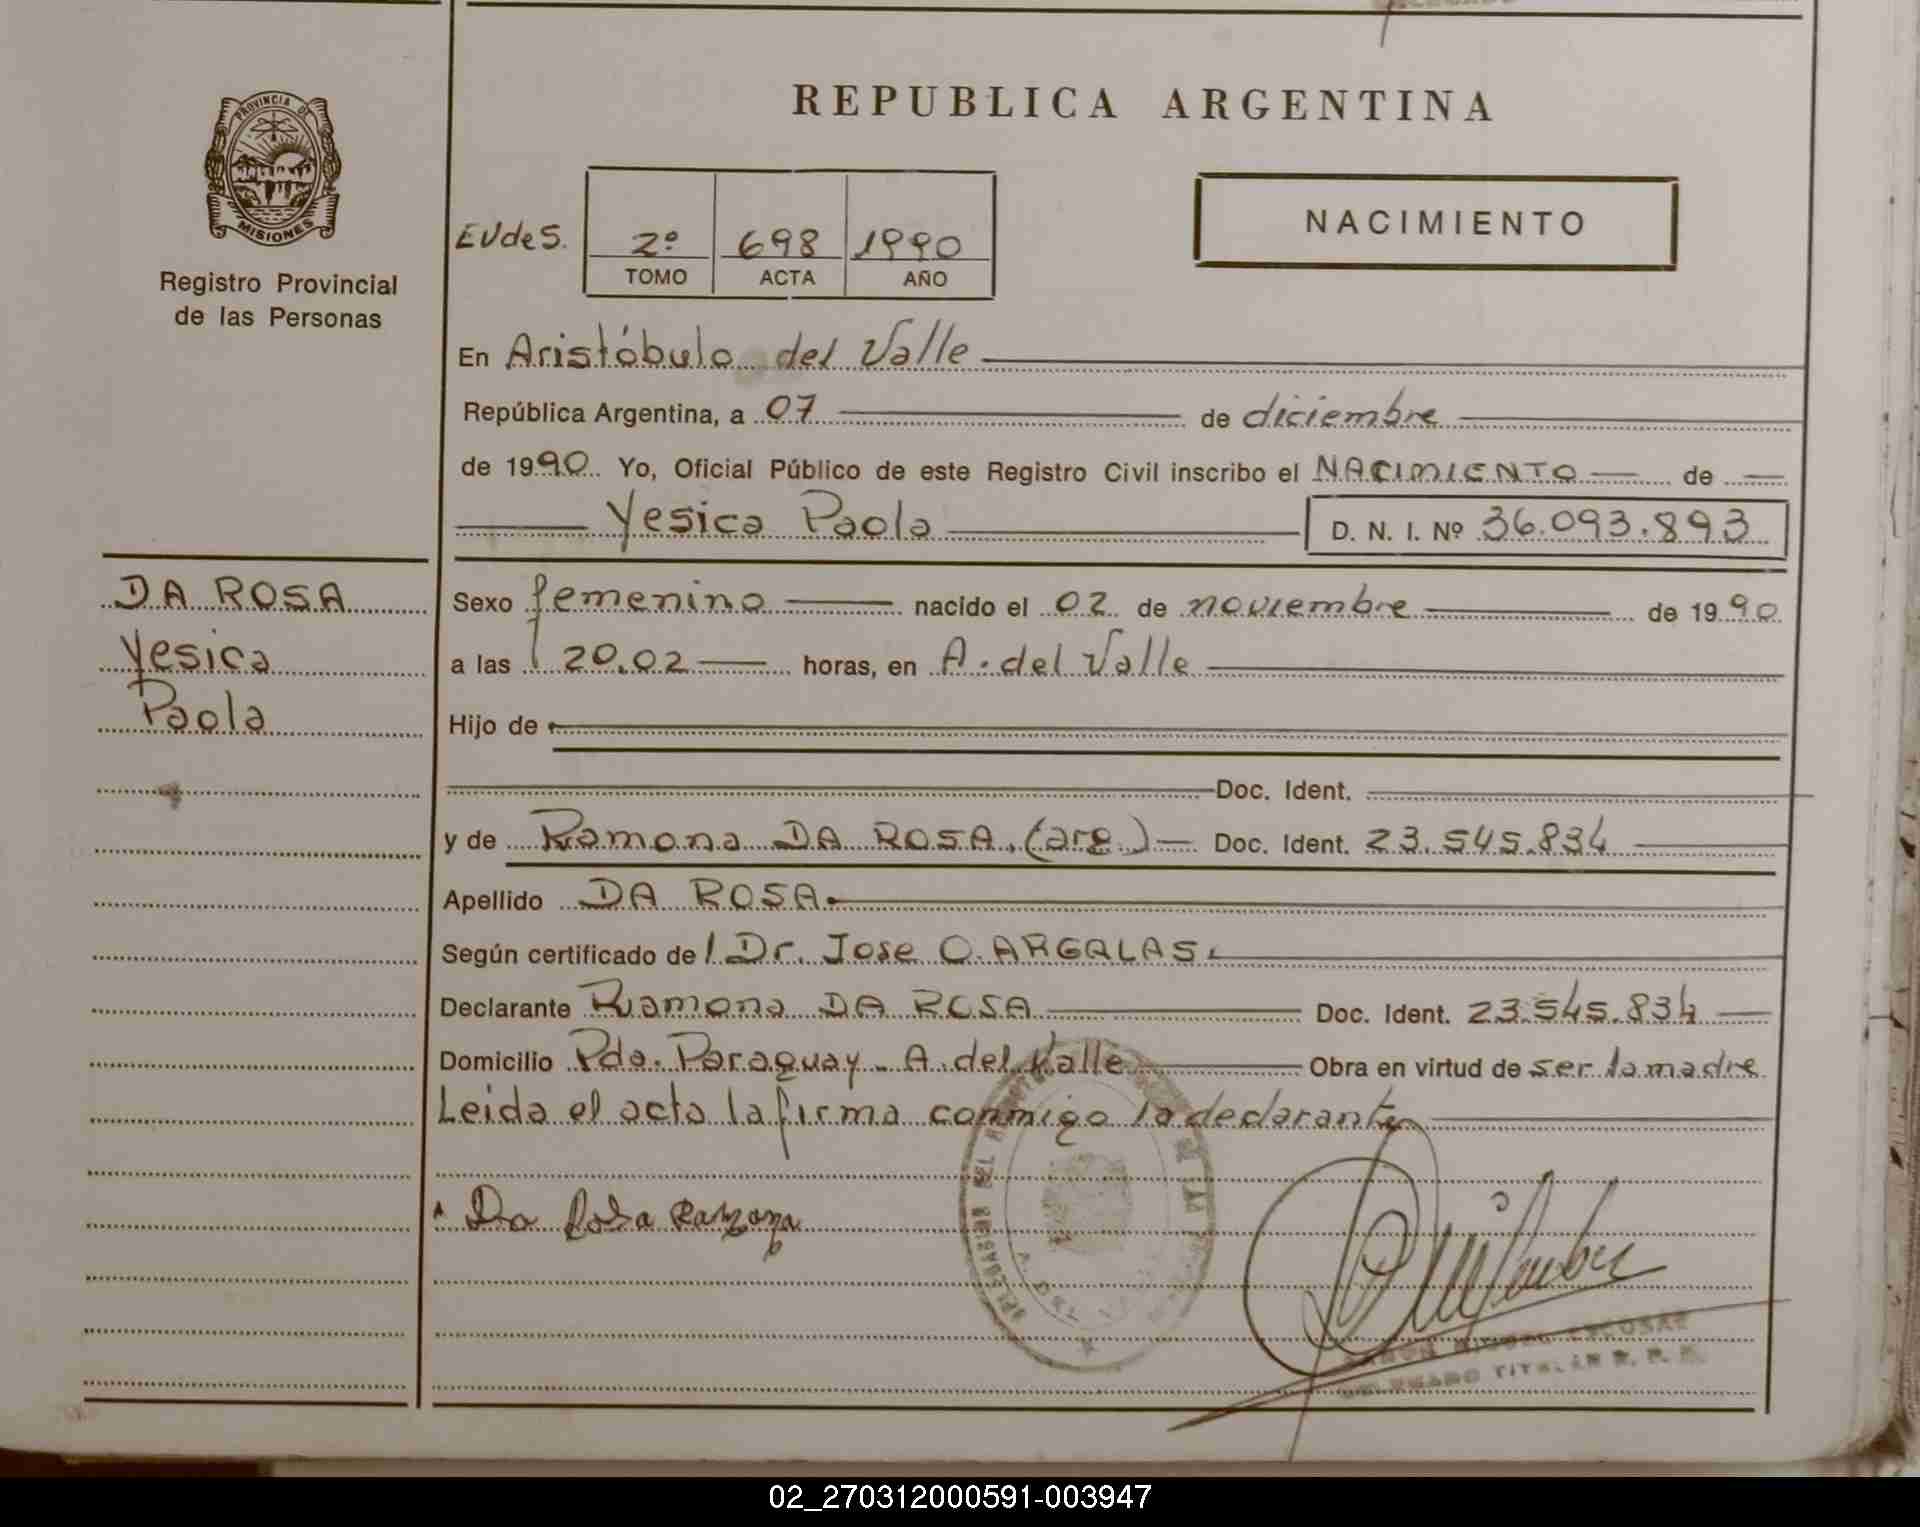 PROVINCIA DE
MISIONES
Registro Provincial
de las Personas
REPUBLICA ARGENTINA
EVdeS. 2º 698 1990
TOMO ACTA AÑO
NACIMIENTO
En Aristóbulo del Valle
República Argentina, a 07 de diciembre
de 1990 Yo, Oficial Público de este Registro Civil inscribo el NACIMIENTO de
Yesica Paola D. N. I. Nº 36.093.893
DA ROSA
Yesica
Paola
Sexo femenino nacido el 02 de noviembre de 1990
a las 20.02 horas, en A. del Valle
Hijo de
Doc. Ident.
y de Ramona DA ROSA. (arg.) Doc. Ident. 23.545.834
Apellido DA ROSA.
Según certificado de Dr. Jose O. ARGALAS.
Declarante Ramona DA ROSA Doc. Ident. 23.545.834
Domicilio Pdo. Paraguay - A. del Valle Obra en virtud de ser la madre
Leida el acta la firma conmigo la declarante
Da Rosa Ramona
TITULAR R. P. P.
02_270312000591-003947